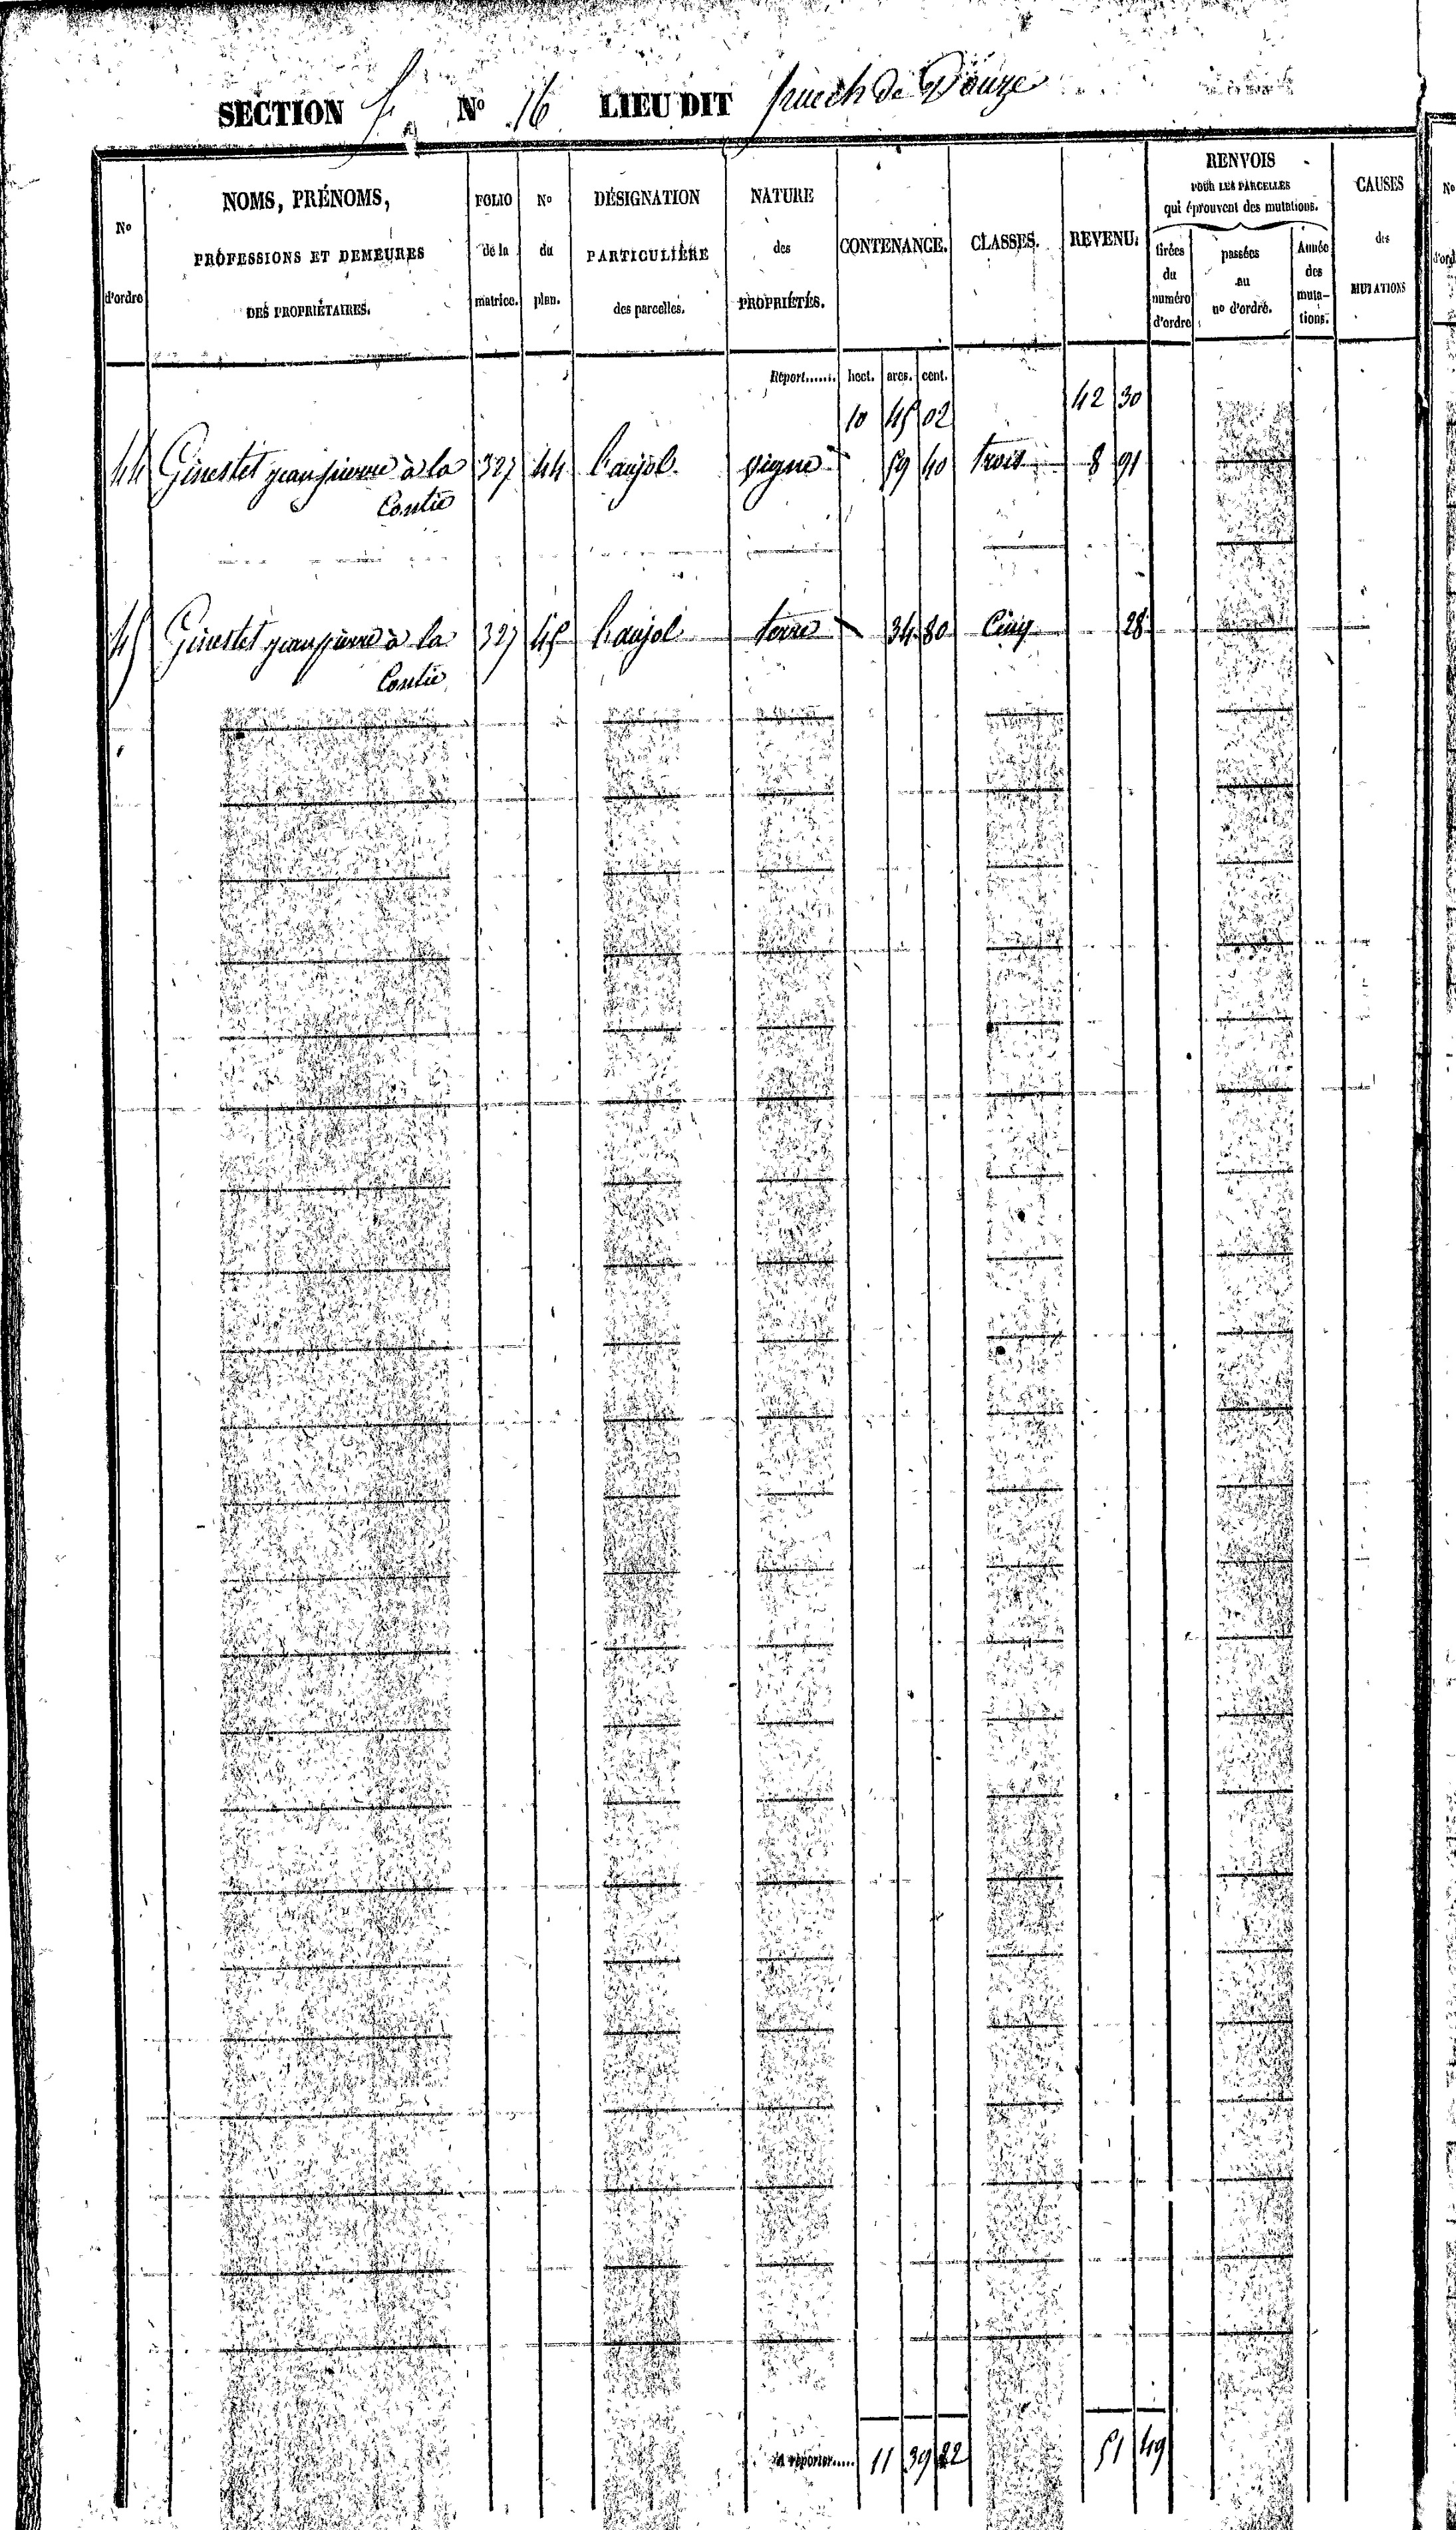 SECTION F N° 16 LIEU DIT puech de Douze
N° d'ordre
NOMS, PRÉNOMS, PROFESSIONS ET DEMEURES DES PROPRIÉTAIRES.
FOLIO de la matrice.
N° du plan.
DÉSIGNATION PARTICULIÈRE des parcelles.
NATURE des PROPRIÉTÉS.
CONTENANCE.
CLASSES.
REVENU.
RENVOIS POUR LES PARCELLES qui éprouvent des mutations.
tirées du numéro d'ordre
passées au n° d'ordre.
Année des muta-tions.
CAUSES des MUTATIONS
Report...... hect. ares. cent.
10 45 02 42 30
44 Ginestet jean pierre à la 327 44 Laujol vigne 59 40 trois 8 91
Contie
45 Ginestet jean pierre à la 327 45 Laujol terre 34 80 Cinq 28
Contie
A reporter..... 11 39 22 51 49